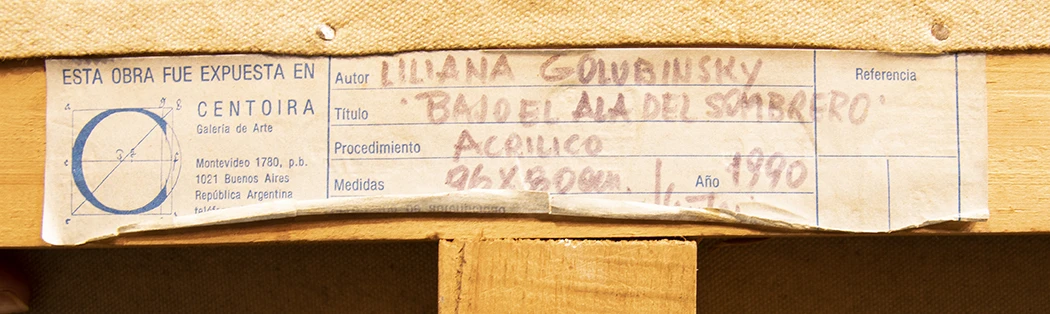 ESTA OBRA FUE EXPUESTA EN
CENTOIRA
Galería de Arte
Montevideo 1780, p.b.
1021 Buenos Aires
República Argentina
Autor LILIANA GOLUBINSKY
Título "BAJO EL ALA DEL SOMBRERO"
Procedimiento ACRILICO
Medidas
Año 1990
Referencia